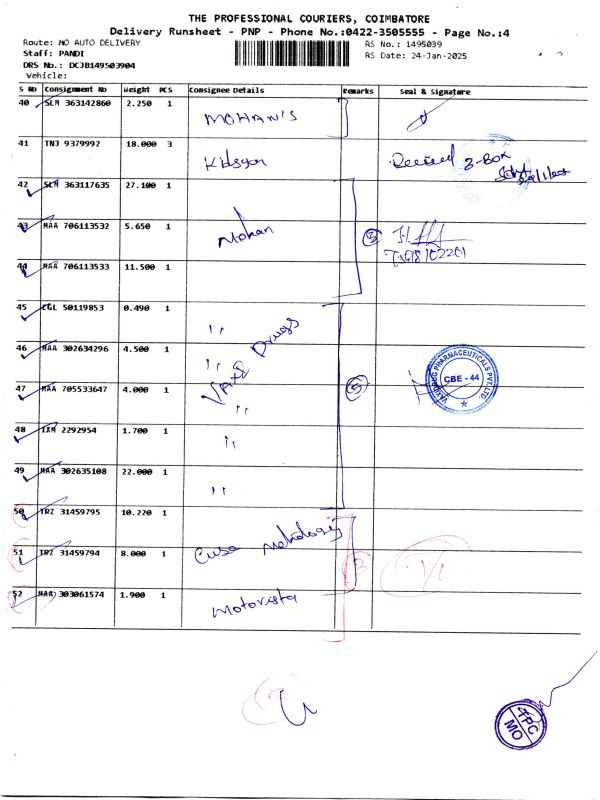 THE PROFESSIONAL COURIERS, COIMBATORE
Delivery Runsheet - PNP - Phone No.:0422-3505555 - Page No.:4
Route: MO AUTO DELIVERY
RS No.: 1495039
Staff: PANDI
RS Date: 24-Jan-2025
DRS No.: DCJB149503904
Vehicle:
S No Consignment No Weight PCS Consignee Details Remarks Seal & Signature
40 SLM 363142860 2.250 1 MOHAN'S
41 TNJ 9379992 18.000 3 3-Box
42 SLM 363117635 27.100 1
43 MAA 706113532 5.650 1 Mohan 3
44 MAA 706113533 11.500 1
45 CGL 50119853 0.490 1 "
46 MAA 302634296 4.500 1 " Drugs
47 MAA 705533647 4.000 1 " 5
VARDROG PHARMACEUTICALS PVT.LTD. CBE - 44
48 IXM 2292954 1.700 1 "
49 MAA 302635108 22.000 1 "
50 TRZ 31459795 10.220 1
51 TRZ 31459794 8.000 1
52 MAA 303061574 1.900 1 Motorista
TPC MO